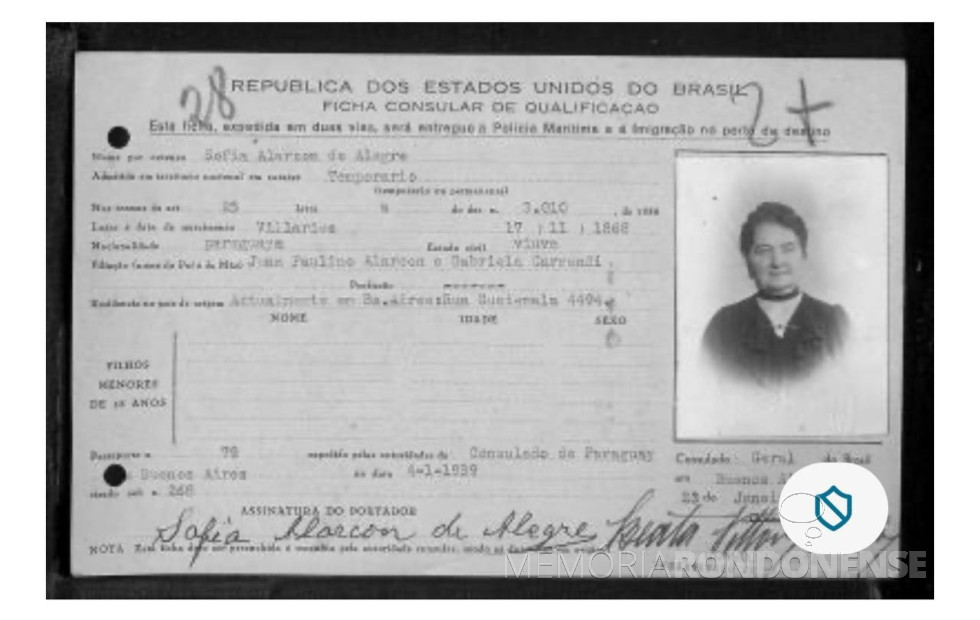 28
REPUBLICA DOS ESTADOS UNIDOS DO BRASIL
2 +
FICHA CONSULAR DE QUALIFICAÇAO
Esta ficha, expedida em duas vias, será entregue á Policia Maritima e á Imigração no porto de destino
Nome por extenso Sofia Alarcon de Alegre
Admitido em territorio nacional em carater Temporario
(temporario ou permanente)
Nos termos do art. 25 letra a do dec. n. 3.010, de 1938
Lugar e data de nascimento Villarica 17 / 11 / 1868
Nacionalidade paraguaya Estado civil viuva
Filiação (nome do Pai e da Mãe) Juan Paulino Alarcon e Gabriela
Profissão -------
Residencia no país de origem Actualmente en Bs.Aires: Rua Guatemala 4494
NOME IDADE SEXO
FILHOS
MENORES
DE 18 ANOS
Passaporte n. 79 expedido pelas autoridades de Consulado de Paraguay
Buenos Aires na data 4-1-1939
visado sob n. 268
Consulado Geral do Brasil
em Buenos
23 de
ASSINATURA DO PORTADOR
Sofia Alarcon de Alegre
NOTA Esta ficha deve ser preenchida
MEMORIARONDONENSE